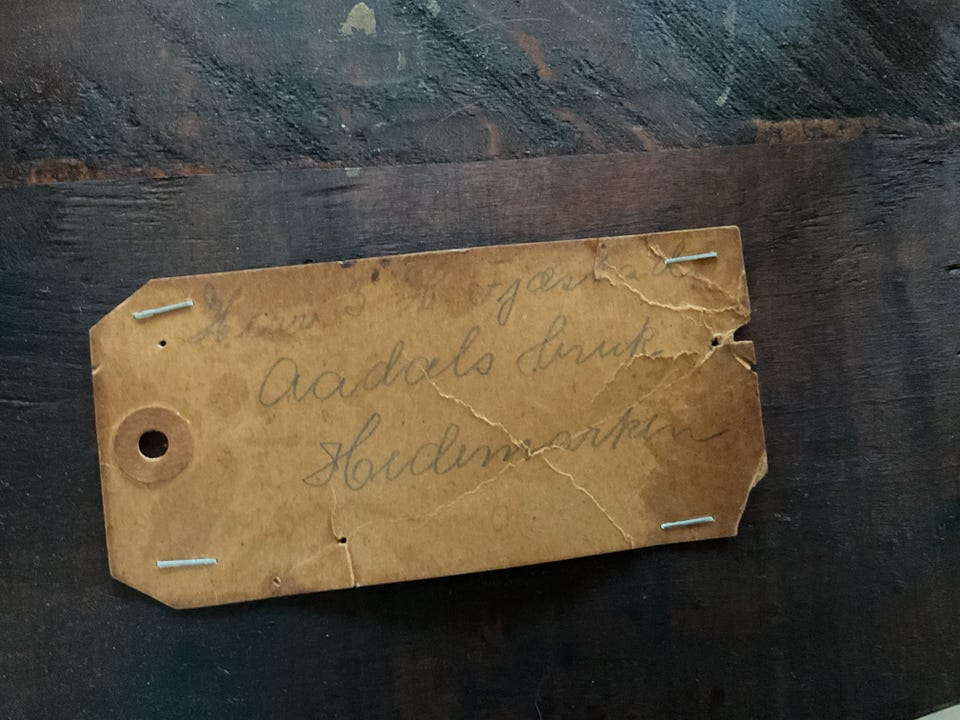 Herr H Fjæstad
Aadals bruk
Hedemarken